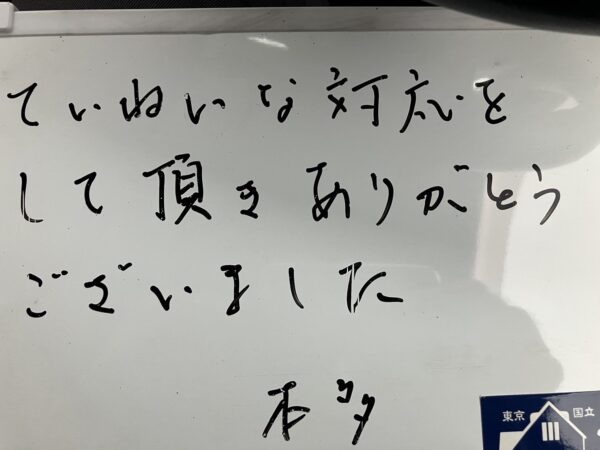 ていねいな対応を
して頂きありがとう
ございました
本多
東京 国立